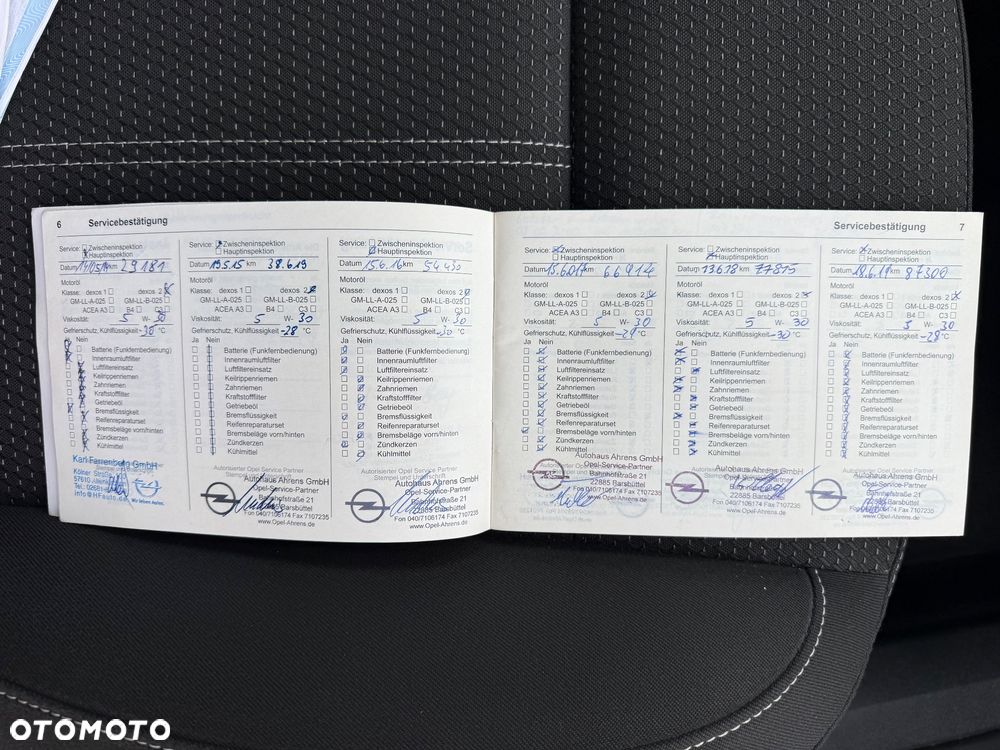 6 Servicebestätigung
Service: Zwischeninspektion
Hauptinspektion
Datum km 29181
Motoröl
Klasse: dexos 1 dexos 2
GM-LL-A-025 GM-LL-B-025
ACEA A3 B4 C3
Viskosität: 5 W- 30
Gefrierschutz, Kühlflüssigkeit -30 °C
Ja Nein
Batterie (Funkfernbedienung)
Innenraumluftfilter
Luftfiltereinsatz
Keilrippenriemen
Zahnriemen
Kraftstofffilter
Getriebeöl
Bremsflüssigkeit
Reifenreparaturset
Bremsbeläge vorn/hinten
Zündkerzen
Kühlmittel
Karl Farrenberg GmbH
Kölner
57610
Wir leben Autos.
Service: Zwischeninspektion
Hauptinspektion
Datum 19.5.15 km 38.619
Motoröl
Klasse: dexos 1 dexos 2
GM-LL-A-025 GM-LL-B-025
ACEA A3 B4 C3
Viskosität: 5 W- 30
Gefrierschutz, Kühlflüssigkeit -28 °C
Ja Nein
Batterie (Funkfernbedienung)
Innenraumluftfilter
Luftfiltereinsatz
Keilrippenriemen
Zahnriemen
Kraftstofffilter
Getriebeöl
Bremsflüssigkeit
Reifenreparaturset
Bremsbeläge vorn/hinten
Zündkerzen
Kühlmittel
Autorisierter Opel Service Partner
Autohaus Ahrens GmbH
Opel-Service-Partner
Bahnhofstraße 21
22885 Barsbüttel
Fon 040/7106174 Fax 7107235
www.Opel-Ahrens.de
Service: Zwischeninspektion
Hauptinspektion
Datum 15.6.16 km 54430
Motoröl
Klasse: dexos 1 dexos 2
GM-LL-A-025 GM-LL-B-025
ACEA A3 B4 C3
Viskosität: 5 W- 30
Gefrierschutz, Kühlflüssigkeit -30 °C
Ja Nein
Batterie (Funkfernbedienung)
Innenraumluftfilter
Luftfiltereinsatz
Keilrippenriemen
Zahnriemen
Kraftstofffilter
Getriebeöl
Bremsflüssigkeit
Reifenreparaturset
Bremsbeläge vorn/hinten
Zündkerzen
Kühlmittel
Autorisierter Opel Service Partner
Stempel und Unterschrift
Autohaus Ahrens GmbH
Opel-Service-Partner
Bahnhofstraße 21
22885 Barsbüttel
Fon 040/7106174 Fax 7107235
www.Opel-Ahrens.de
Servicebestätigung 7
Service: Zwischeninspektion
Hauptinspektion
Datum 15.6.017 km 66914
Motoröl
Klasse: dexos 1 dexos 2
GM-LL-A-025 GM-LL-B-025
ACEA A3 B4 C3
Viskosität: 5 W- 30
Gefrierschutz, Kühlflüssigkeit °C
Ja Nein
Batterie (Funkfernbedienung)
Innenraumluftfilter
Luftfiltereinsatz
Keilrippenriemen
Zahnriemen
Kraftstofffilter
Getriebeöl
Bremsflüssigkeit
Reifenreparaturset
Bremsbeläge vorn/hinten
Zündkerzen
Kühlmittel
Autohaus Ahrens GmbH
Opel-Service-Partner
Bahnhofstraße 21
22885 Barsbüttel
Fon 040/7106174 Fax 7107235
www.Opel-Ahrens.de
Service: Zwischeninspektion
Hauptinspektion
Datum 13.6.18 km 77875
Motoröl
Klasse: dexos 1 dexos 2
GM-LL-A-025 GM-LL-B-025
ACEA A3 B4 C3
Viskosität: 5 W- 30
Gefrierschutz, Kühlflüssigkeit -30 °C
Ja Nein
Batterie (Funkfernbedienung)
Innenraumluftfilter
Luftfiltereinsatz
Keilrippenriemen
Zahnriemen
Kraftstofffilter
Getriebeöl
Bremsflüssigkeit
Reifenreparaturset
Bremsbeläge vorn/hinten
Zündkerzen
Kühlmittel
Autohaus Ahrens GmbH
Opel-Service-Partner
Bahnhofstraße 21
22885 Barsbüttel
Fon 040/7106174 Fax 7107235
www.Opel-Ahrens.de
Service: Zwischeninspektion
Hauptinspektion
Datum 18.6.19 km 87300
Motoröl
Klasse: dexos 1 dexos 2
GM-LL-A-025 GM-LL-B-025
ACEA A3 B4 C3
Viskosität: 5 W- 30
Gefrierschutz, Kühlflüssigkeit -28 °C
Ja Nein
Batterie (Funkfernbedienung)
Innenraumluftfilter
Luftfiltereinsatz
Keilrippenriemen
Zahnriemen
Kraftstofffilter
Getriebeöl
Bremsflüssigkeit
Reifenreparaturset
Bremsbeläge vorn/hinten
Zündkerzen
Kühlmittel
Autohaus Ahrens GmbH
Opel-Service-Partner
Bahnhofstraße 21
22885 Barsbüttel
Fon 040/7106174 Fax 7107235
www.Opel-Ahrens.de
OTOMOTO